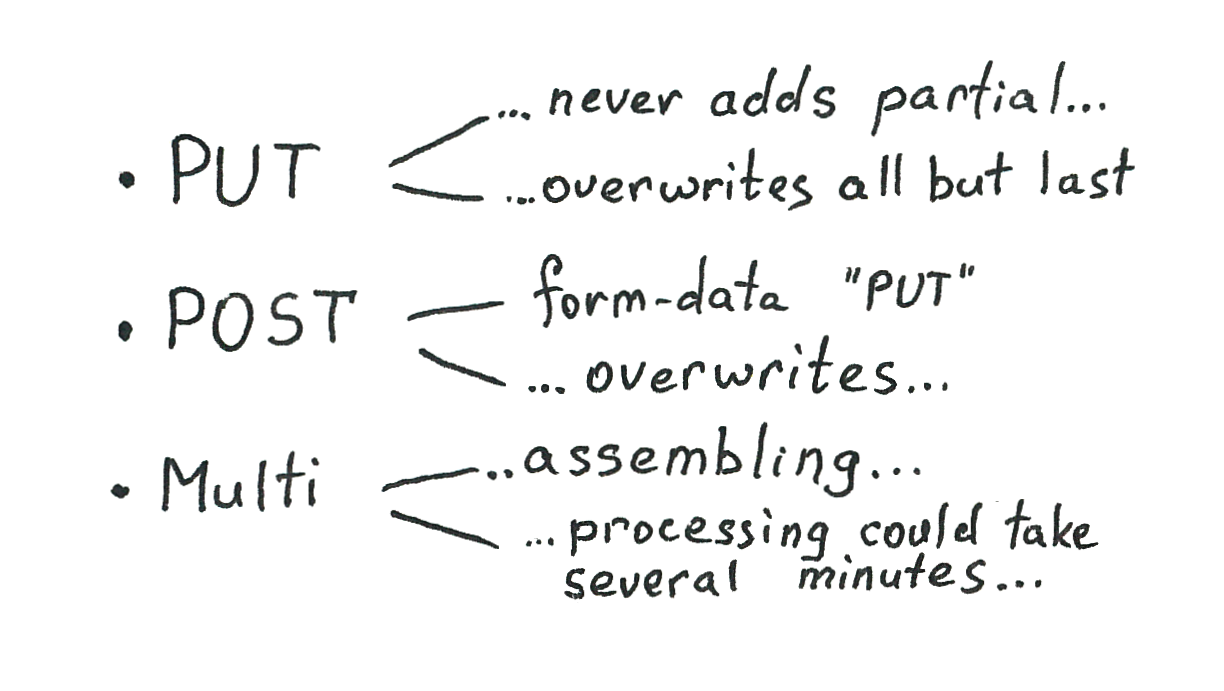 • PUT
... never adds partial...
...overwrites all but last
• POST
form-data "PUT"
... overwrites...
• Multi
..assembling...
... processing could take
several minutes...